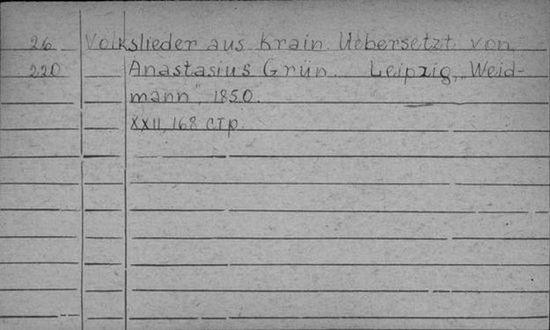 26 Volkslieder aus Krain. Uebersetzt von
220 Anastasius Grün. Leipzig, „Weid-
mann", 1850.
XXII, 168 стр.